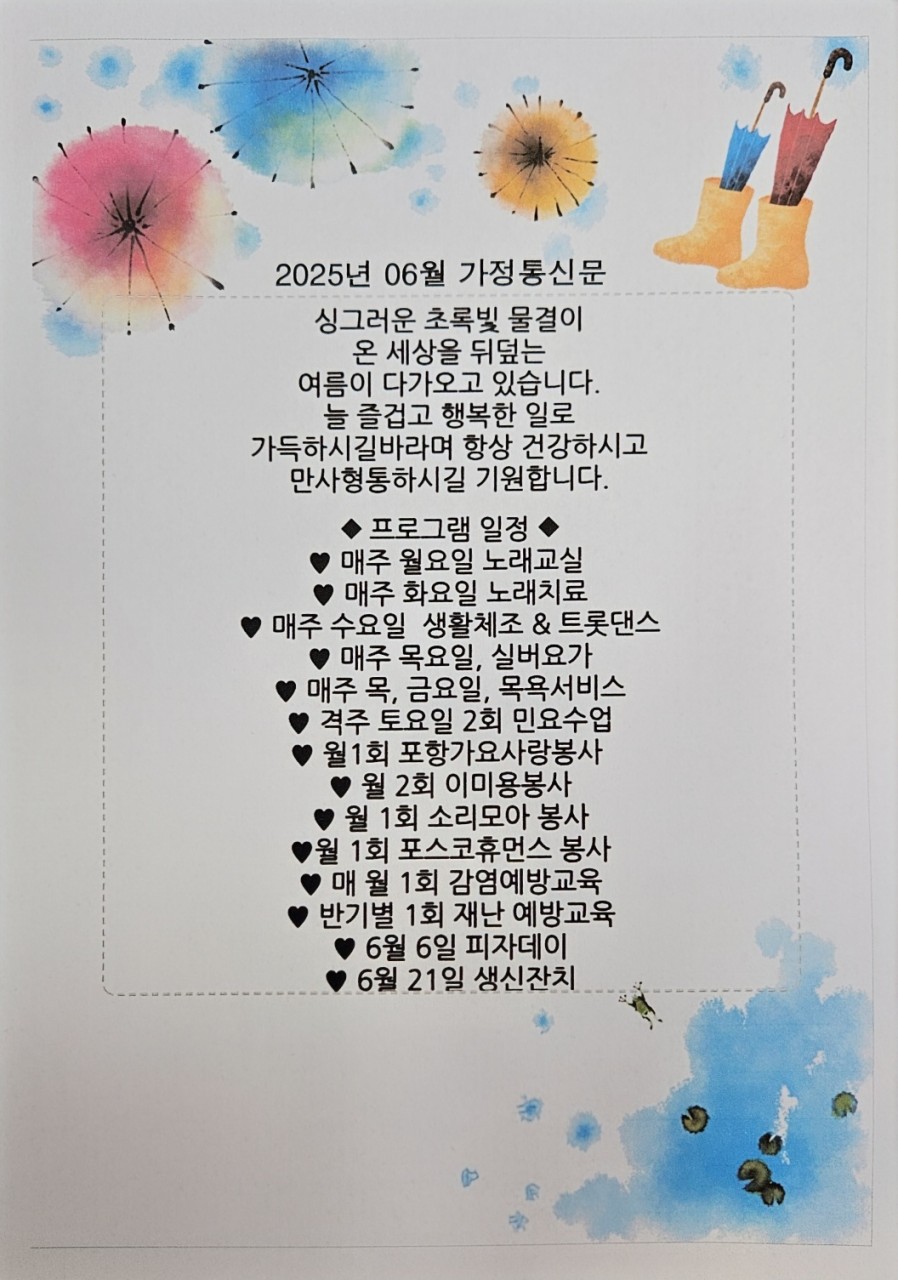 2025년 06월 가정통신문
싱그러운 초록빛 물결이
온 세상을 뒤덮는
여름이 다가오고 있습니다.
늘 즐겁고 행복한 일로
가득하시길바라며 항상 건강하시고
만사형통하시길 기원합니다.
◆ 프로그램 일정 ◆
♥ 매주 월요일 노래교실
♥ 매주 화요일 노래치료
♥ 매주 수요일 생활체조 & 트롯댄스
♥ 매주 목요일, 실버요가
♥ 매주 목, 금요일, 목욕서비스
♥ 격주 토요일 2회 민요수업
♥ 월1회 포항가요사랑봉사
♥ 월 2회 이미용봉사
♥ 월 1회 소리모아 봉사
♥월 1회 포스코휴먼스 봉사
♥ 매 월 1회 감염예방교육
♥ 반기별 1회 재난 예방교육
♥ 6월 6일 피자데이
♥ 6월 21일 생신잔치